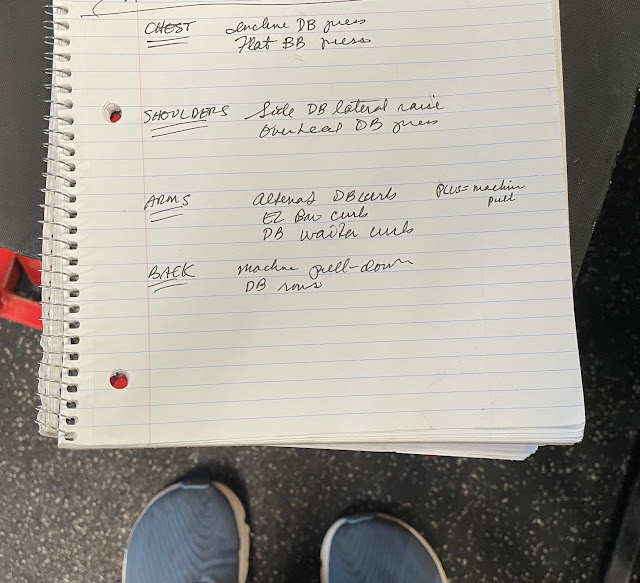 CHEST Incline DB press
Flat BB press
SHOULDERS Side DB lateral raise
Overhead DB press
ARMS Alternat DB curb PLUS= machine
EZ Bar curb pull
DB waiter curb
BACK machine pull-down
DB rows